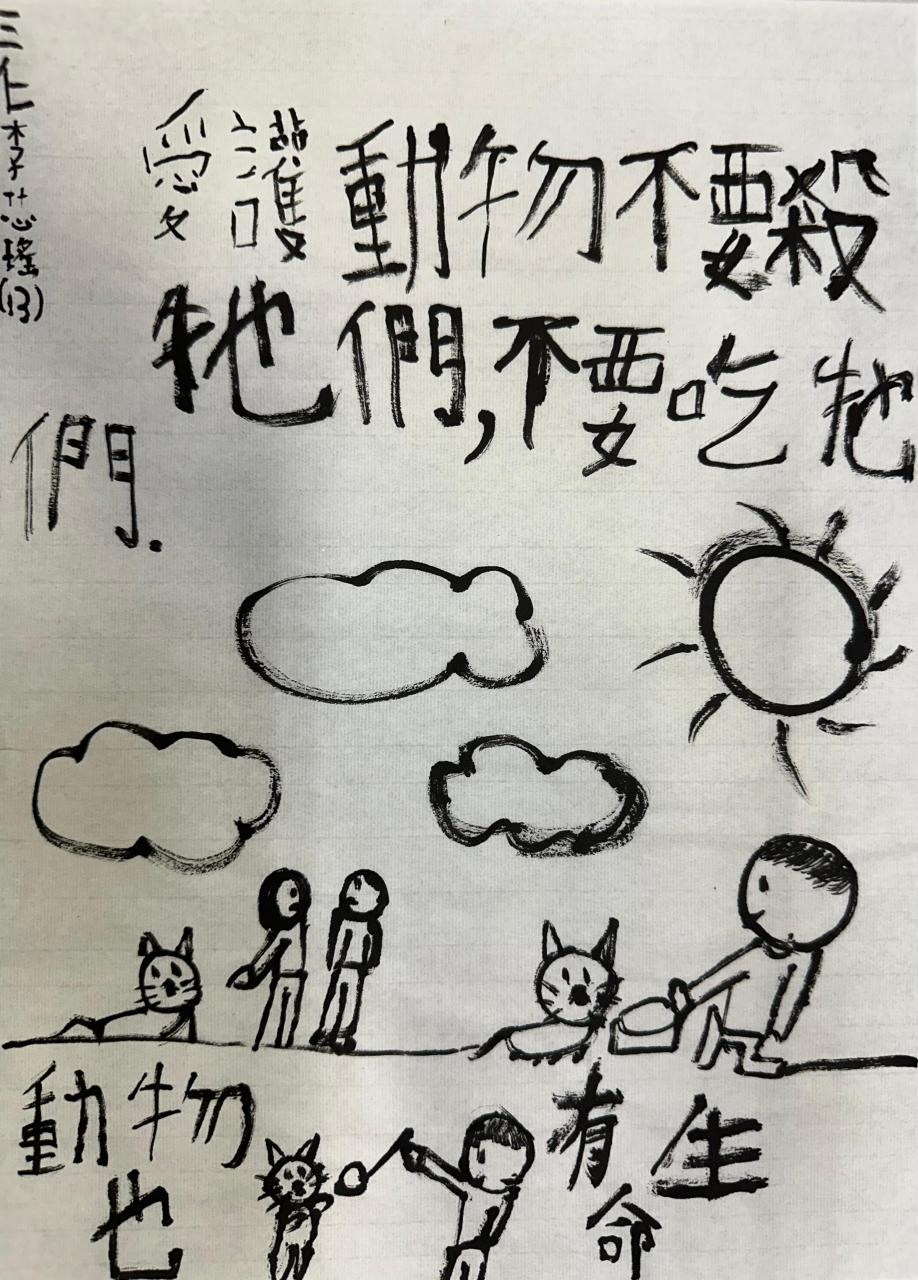 三仁李芯瑤(13)
愛護動物不要殺
牠們,不要吃牠
們.
動物也有生命